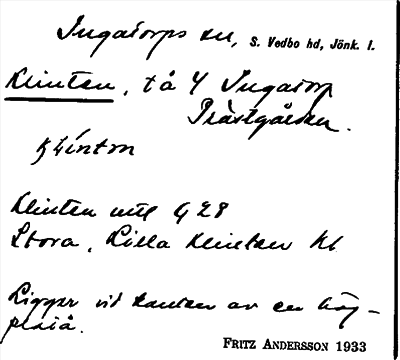 Ingatorps sn, S. Vedbo hd, Jönk. l.
Klinten, t å 4 Ingatorp
Prästgården.
klínton
Klinten utm G 28
Stora, Lilla Klinten Kl
Ligger vid kanten av en hög-
platå.
FRITZ ANDERSSON 1933